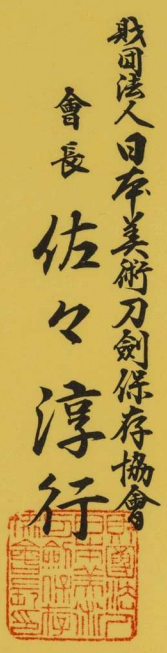 財団法人日本美術刀劍保存協會
會長 佐々淳行